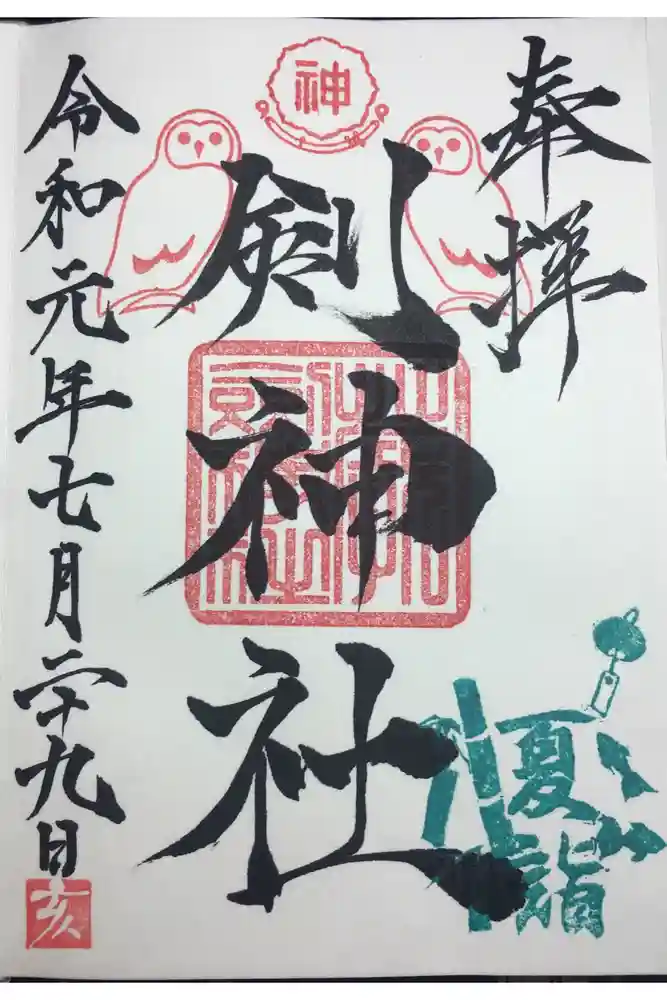 奉拝
神
剣神社
夏詣
令和元年七月二十九日
亥